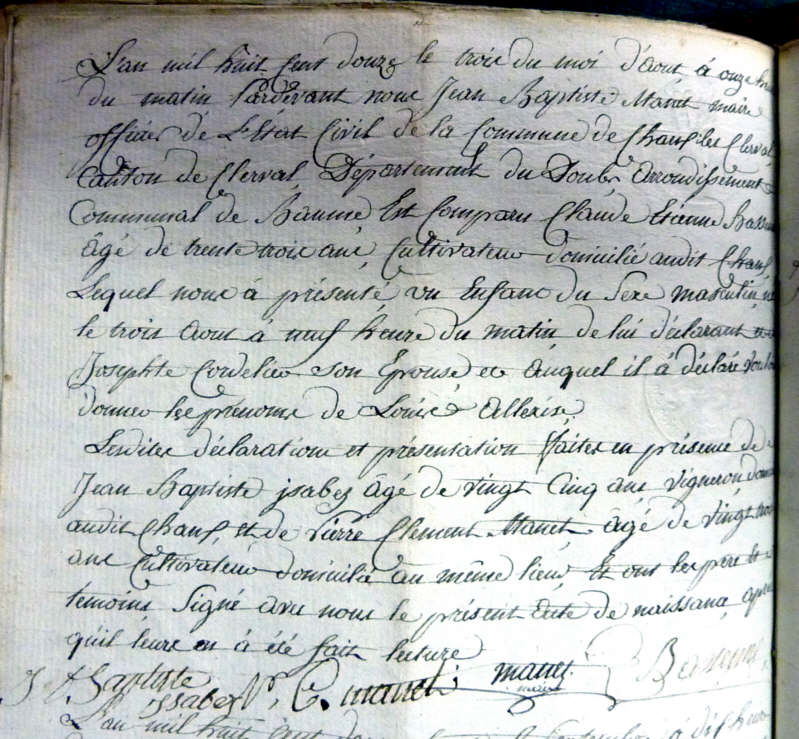 L'an mil huit cent douze le trois du moi d'aout, à onze
du matin Pardevant nous Jean Baptiste Manet maire
officier de L'Etat Civil de la Commune de Chaux les Clerval
Canton de Clerval, Département du Doubs Arrondissement
Communal de Baume Est Comparu Claude Etienne
âgé de trente trois ans, Cultivateur domicilié audit Chaux,
Lequel nous à présenté un Enfant du Sexe masculin,
le trois aout à neuf heure du matin de lui déclarant
Josephte Cordelier son Epouse et auquel il à déclaré
donner les prénoms de Louis
Lesdites déclaration et présentation faites en présence de
Jean Baptiste jsabey âgé de vingt Cinq ans vigneron
audit Chaux, et de Pierre Clement Manet âgé de vingt
ans Cultivateur domicilié au même lieu, Et ont les père et
temoins Signé avec nous le présent Acte de naissance,
qu'il leure en à été fait lecture
J Baptiste manet
jssabey P. C. manet maire
L'an mil huit cent